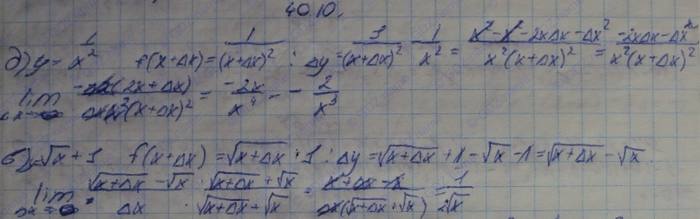 40.10.
д) y = 1/x² f(x+Δx) = 1/(x+Δx)² ; Δy = 1/(x+Δx)² - 1/x² = (x² - x² - 2xΔx - Δx²)/(x²(x+Δx)²) = (-2xΔx - Δx²)/(x²(x+Δx)²)
lim Δx→0 -Δx(2x+Δx)/(Δx x²(x+Δx)²) = -2x/x⁴ = -2/x³
б) y = √x + 1 f(x+Δx) = √(x+Δx) + 1 ; Δy = √(x+Δx) + 1 - √x - 1 = √(x+Δx) - √x
lim Δx→0 = (√(x+Δx) - √x)/Δx · (√(x+Δx) + √x)/(√(x+Δx) + √x) = (x+Δx - x)/(Δx(√(x+Δx) + √x)) = 1/(2√x)